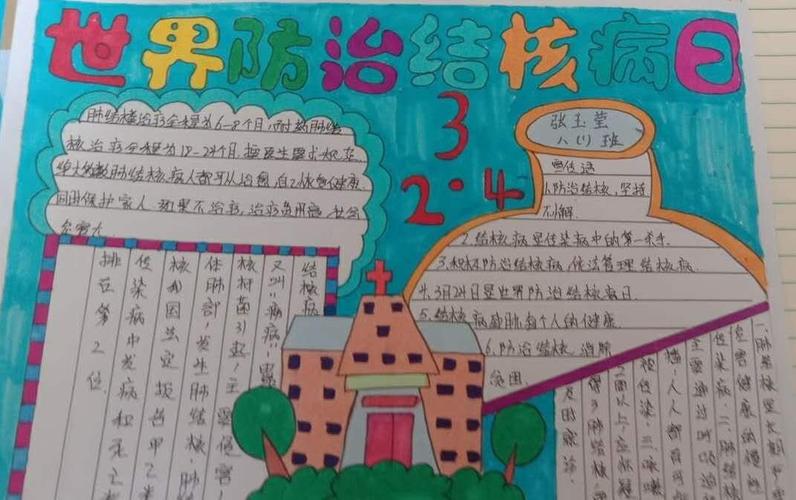 世界防治结核病日
3
2·4
肺结核治疗全程为6-8个月,耐药肺结
核治疗全程为18-24个月,按医生要求
绝大多数肺结核病人都可以治愈,自己恢复健康,
同时保护家人,如果不治疗,治疗
张玉莹
八(1)班
宣传语
1.防治结核,坚持
不懈.
2.结核病是传染病中的第一杀手.
3.积极防治结核病,依法管理结核病
4.3月24日是世界防治结核病日.
5.结核病威胁每个人的健康.
6.防治结核,消除
贫困.
结核病
又叫“痨病”,
核杆菌引起,主要侵害
体肺部,发生肺结核
核我国法定报告甲乙类
传染病中发病和死亡
排在第2位.
一、肺结核是长期
危害健康的慢性
传染病.二、肺结核
主要通过呼吸道
播,人人都有可
被传染.三、咳嗽
2周以上,应怀疑
得了肺结核
及时就诊.